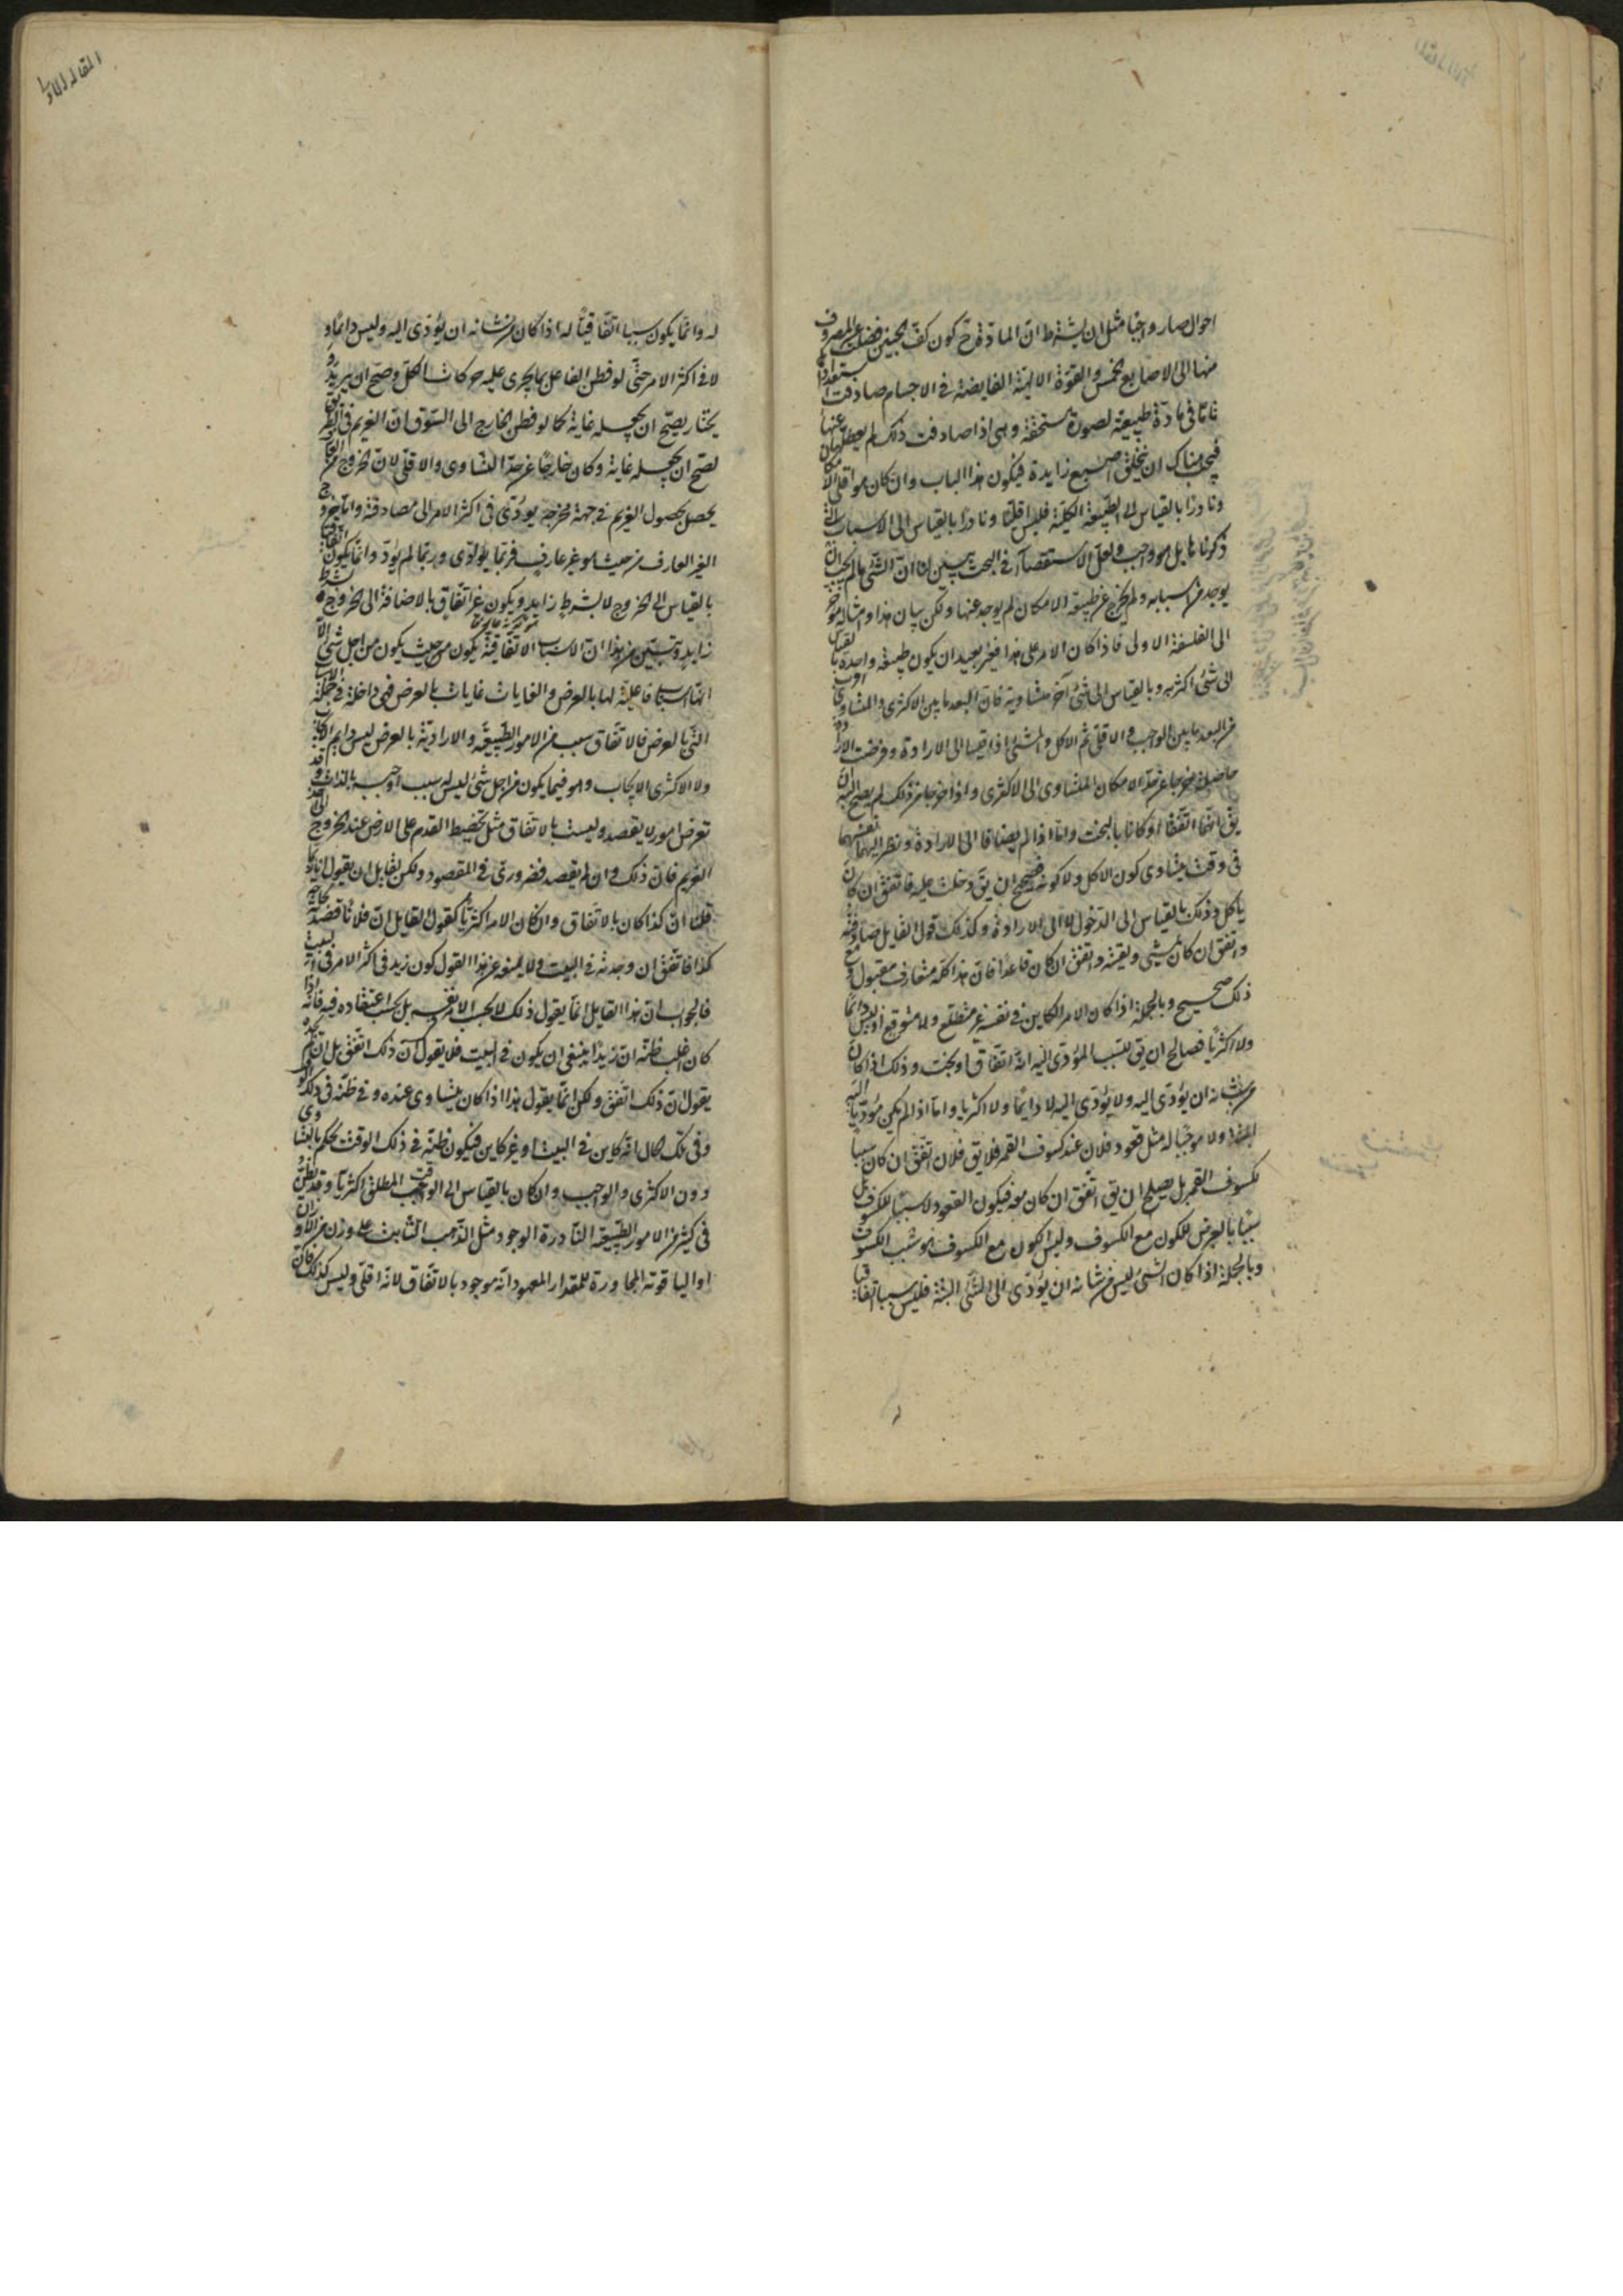 احوال صار واجبا مثل ان يشترط ان المادة فى كون كف الجنين فضلت عن المصروف
منها الى الاصابع الخمس والقوة الالهية الفايضة فى الاجسام صادفت استعدادا
تاما فى مادة طبيعية لصورة مستحقة وهى اذا صادفت ذلك لم يعطل عنها
فيجب هناك ان يتخلق اصبع زايدة فيكون هذا الباب وان كان هو اقلى الامكان
ونادرا بالقياس الى الطبيعة الكلية فليس اقليا ونادرا بالقياس الى الاسباب التى
ذكرناها بل هو واجب ولعل الاستقصاء فى البحث يبين لنا ان الشئ ما لم يجب ان
يوجد من اسبابه ولم يخرج عن طبيعة الامكان لم يوجد عنها ولكن بيان هذا وامثاله مؤخر
الى الفلسفة الاولى فاذا كان الامر على هذا فغير بعيد ان يكون طبيعة واحدة بالقياس
الى شئ اكثرية وبالقياس الى شئ آخر متساوية فان البعد ما بين الاكثرى والمتساوى اقرب
من البعد ما بين الواجب والاقلى ثم الاكل والمشى اذا قيسا الى الارادة وفرضت الارادة
حاصلة خرجا عن حد الامكان المتساوى الى الاكثرى واذا خرجا عن ذلك لم يصح البتة ان
يق انهما اتفقا او كانا بالبخت واما اذا لم يضافا الى الارادة ونظر اليهما نفسهما
فى وقت يتساوى كون الاكل ولا كونه فصحيح ان يق دخلت عليه فاتفق ان كان
ياكل وذلك بالقياس الى الدخول لا الى الارادة وكذلك قول القايل صادفته
واتفق ان كان يمشى ولقيته واتفق ان كان قاعدا فان هذا كله متعارف مقبول ومع
ذلك صحيح وبالجملة اذا كان الامر الكاين فى نفسه غير متطلع ولا متوقع اذ ليس دائما
ولا اكثريا فصالح ان يق للسبب المؤدى اليه انه اتفاق او بخت وذلك اذا كان
من شانه ان يؤدى اليه ولا يؤدى اليه لا دايما ولا اكثريا واما اذا لم يكن مؤديا اليه
البتة ولا موجبا له مثل قعود فلان عند كسوف القمر فلا يق فلان اتفق ان كان سببا
لكسوف القمر بل يصلح ان يق اتفق ان كان معه فيكون القعود لا سببا للكسوف بل
سببا بالعرض للكون مع الكسوف وليس الكون مع الكسوف هو سبب الكسوف
وبالجملة اذا كان الشئ ليس من شانه ان يؤدى الى الشئ البتة فليس سببا اتفاقيا
المقالة الاولى
له وانما يكون سببا اتفاقيا له اذا كان من شانه ان يؤدى اليه وليس دائما و
لا فى اكثر الامر حتى لو فطن الفاعل بما يجرى عليه حركات الكل وصح ان يريد و
يختار لصح ان يجعله غاية كما لو فطن الخارج الى السوق ان الغريم فى الطريق
لصح ان يجعله غاية وكان خارجا عن حد التساوى والاقلى لان خروج العارف
بحصول الغريم فى جهة مخرجه يؤدى فى اكثر الامر الى مصادفته واما خروج
الغير العارف من حيث هو غير عارف فربما يؤدى وربما لم يؤد وانما يكون اتفاقيا
بالقياس الى خروج لا بشرط زايد ويكون غير اتفاق بالاضافة الى خروج بشرط
زايد وتبين من هذا ان الاسباب الاتفاقية يكون من حيث يكون من اجل شئ الا
انها اسباب فاعلية لها بالعرض والغايات غايات بالعرض فهى داخلة فى جملة الاسباب
التى بالعرض فالاتفاق سبب من الامور الطبيعية والارادية بالعرض ليس دايم الايجاب
ولا اكثرى الايجاب وهو فيما يكون من اجل شئ ليس له سبب اوجبه بالذات وقد
تعرض امور لا بقصد وليست بالاتفاق مثل تخطيط القدم على الارض عند الخروج الى اخذ
الغريم فان ذلك وان لم يقصد فضرورى فى المقصود ولكن لقايل ان يقول انا ربما
قلنا ان كذا كان بالاتفاق وان كان الامر اكثريا كقول القايل ان فلانا قصدته لحاجة
كذا فاتفق ان وجدته فى البيت ولا يمنعه عن هذا القول كون زيد فى اكثر الامر فى البيت
فالجواب ان هذا القايل انما يقول ذلك لا بحسب الامر نفسه بل بحسب اعتقاده فيه فانه اذا
كان اغلب ظنه ان زيدا ينبغى ان يكون فى البيت فلا يقول ان ذلك اتفق بل ان لم يجده
يقول ان ذلك اتفق ولكن انما يقول هذا اذا كان يتساوى عنده وفى ظنه فى ذلك الوقت
وفى تلك الحال انه كاين فى البيت او غير كاين فيكون ظنه فى ذلك الوقت يحكم بالتساوى
دون الاكثرى والواجب وان كان بالقياس الى الوقت المطلق اكثريا وقد يظن
فى كثير من الامور الطبيعية النادرة الوجود مثل الذهب النابت على وزن من الاوزان
او الياقوتة المجاورة للمقدار المعهود انه موجود بالاتفاق لانه اقلى وليس كذلك فان